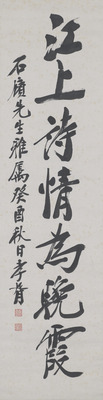 江上詩情為晚霞
石廎先生雅属癸酉秋日孝胥